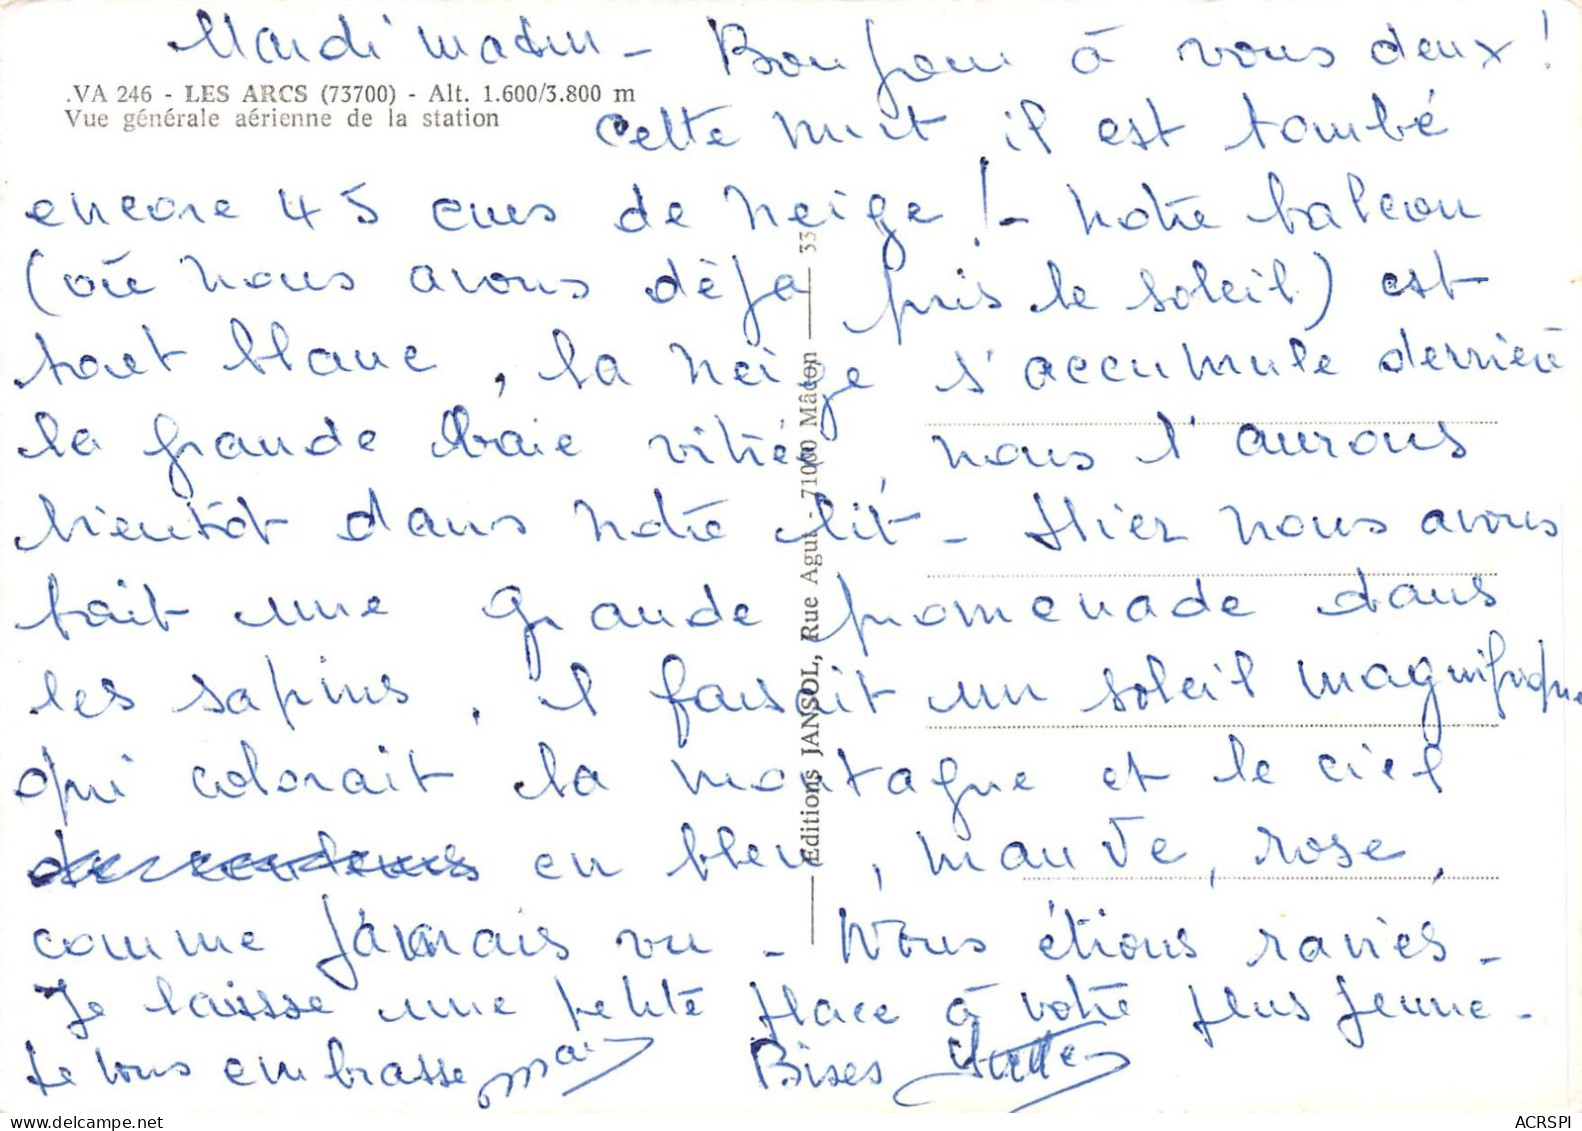 Mardi matin - Bonjour à vous deux !
.VA 246 - LES ARCS (73700) - Alt. 1.600/3.800 m
Vue générale aérienne de la station
Cette nuit il est tombé
encore 45 cms de neige ! - notre balcon
(où nous avons déjà pris le soleil) est
tout blanc, la neige s'accumule derrière
la grande baie vitrée, nous l'aurons
bientôt dans notre lit - Hier nous avons
fait une grande promenade dans
les sapins, il faisait un soleil magnifique
qui colorait la montagne et le ciel
en bleu, mauve, rose,
comme jamais vu - Nous étions ravies -
Je laisse une petite place à votre plus jeune -
Je vous embrasse
Bises
Editions JANSOL, Rue Agut - 71000 Mâcon 33
ACRSPI